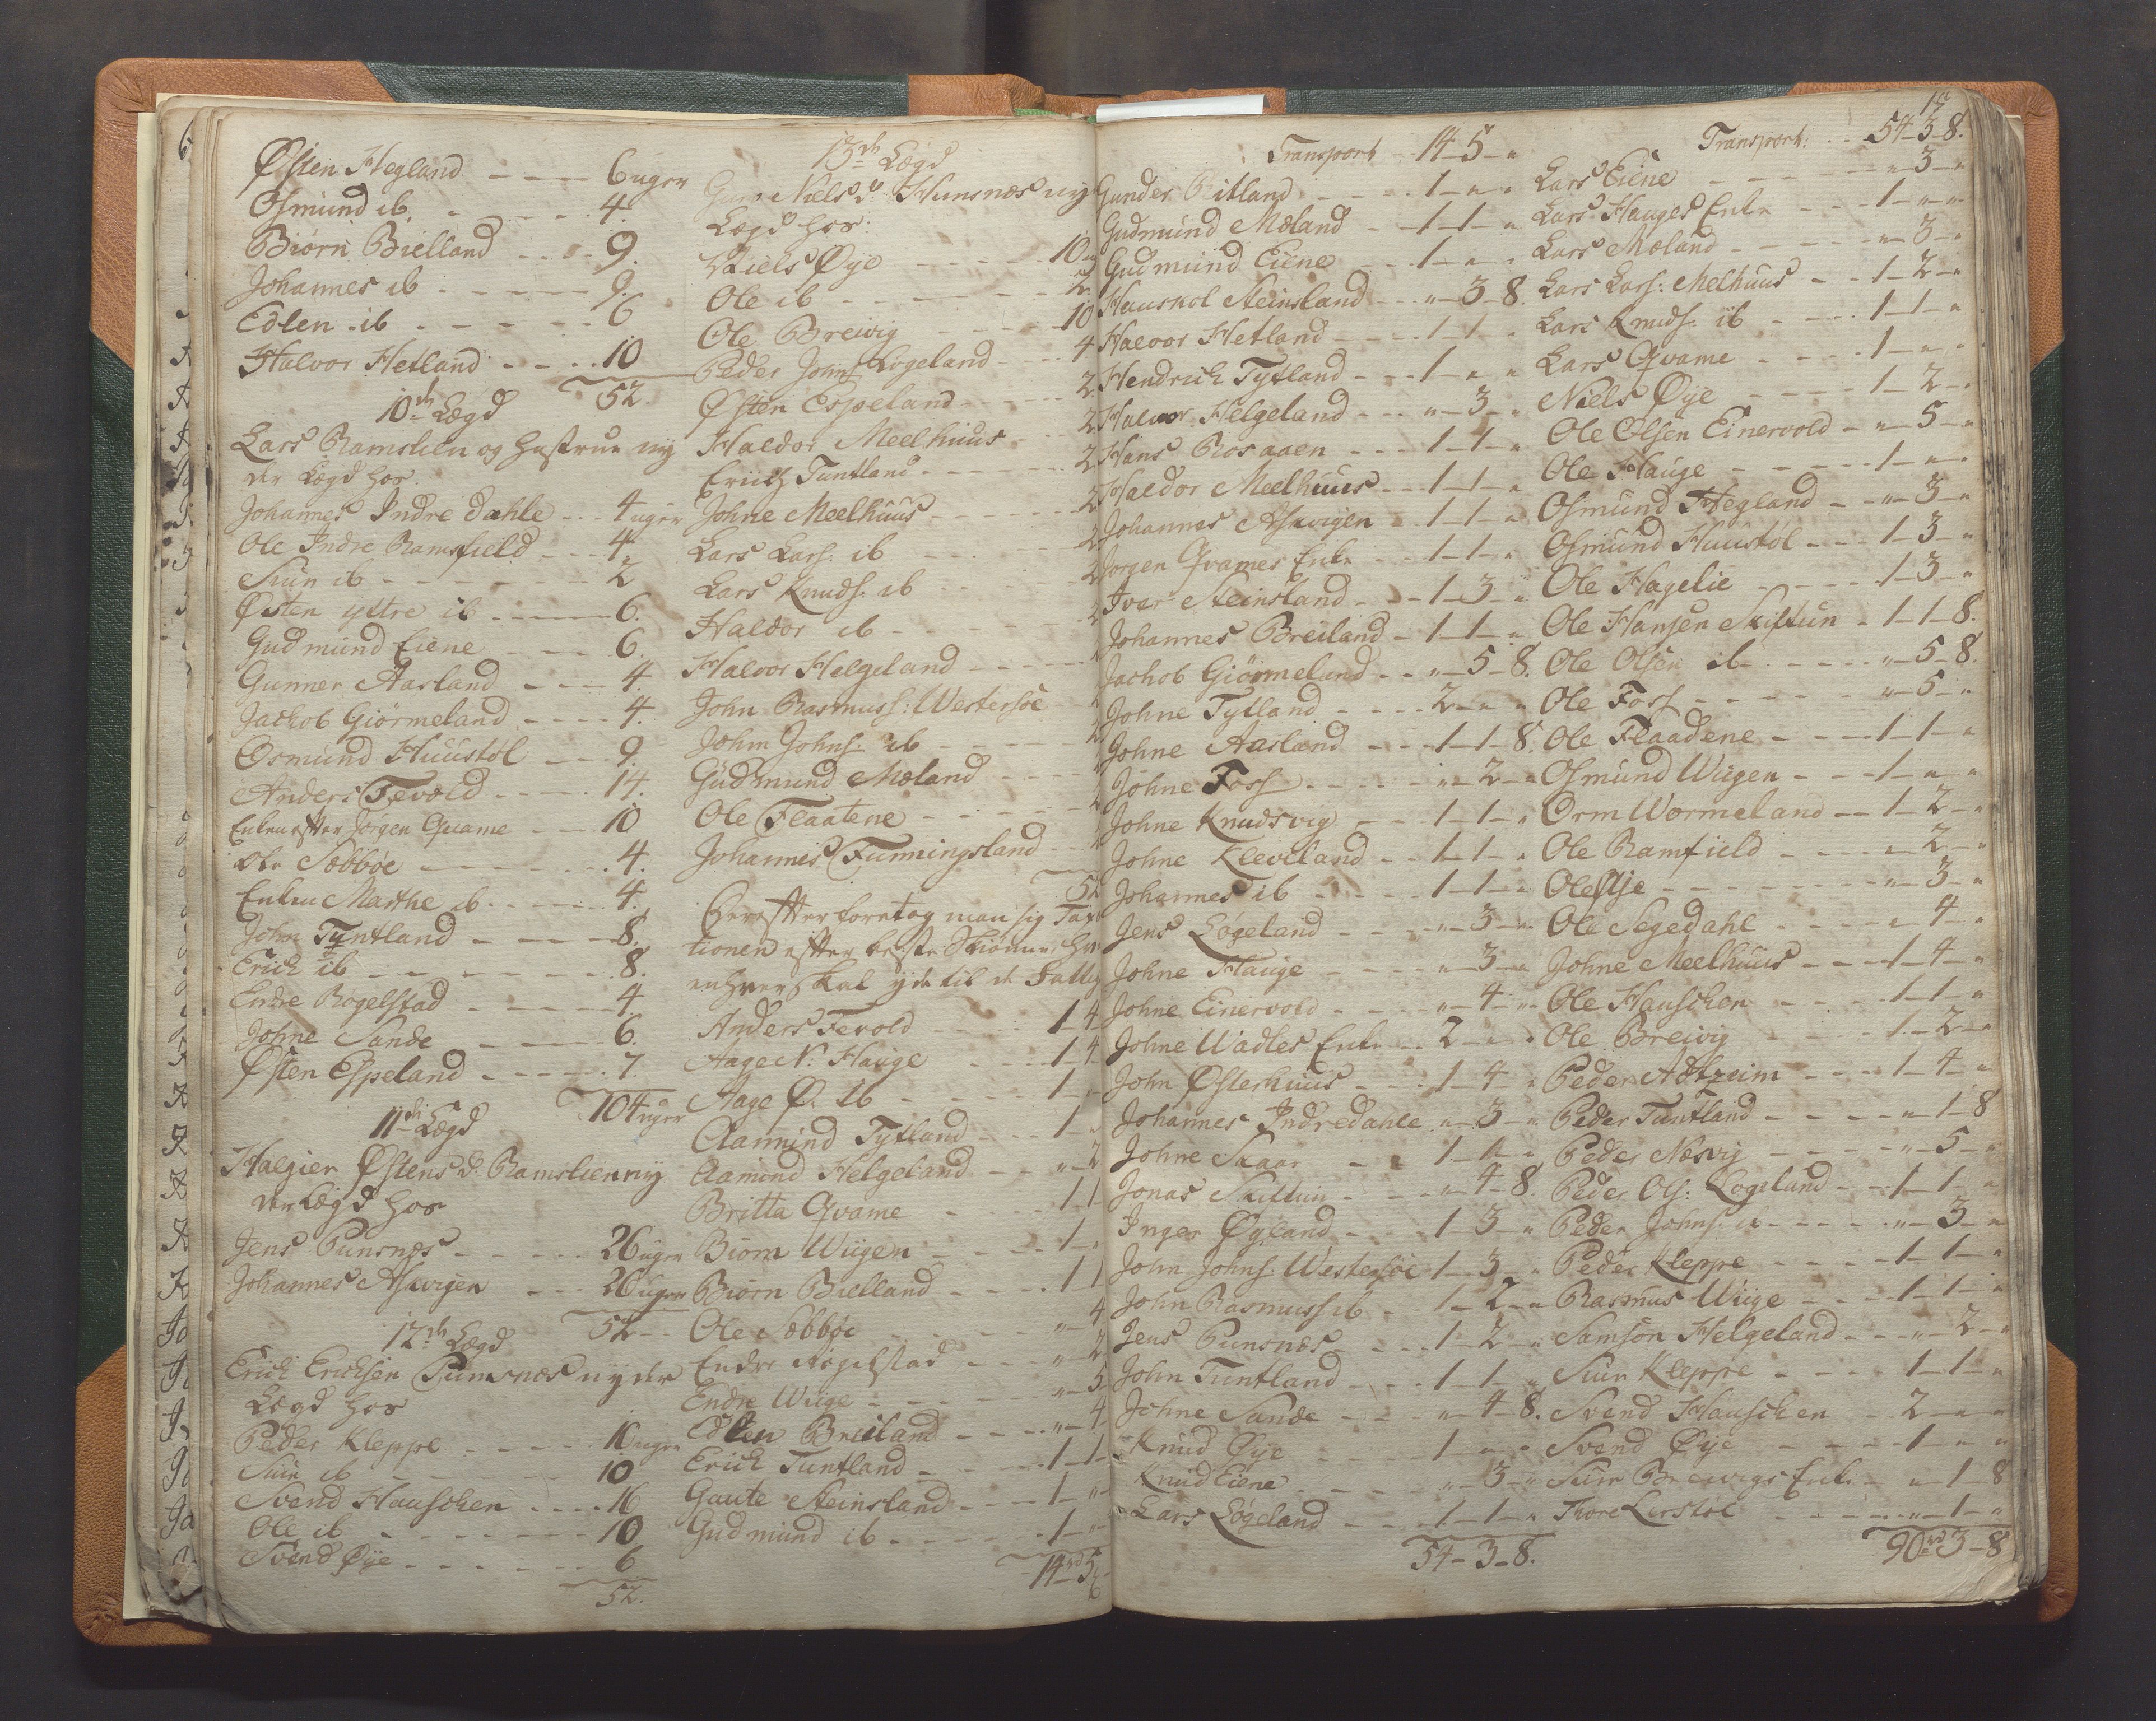 Østen Hegland - - - 6 uger
Osmund ib. - - - 4.
Biørn Bielland - - - 9.
Johannes ib - - - 9.
Edlen ib - - - 6
Halvor Hetland - - - 10
52
10de Lægd
Lars Ramslien og Hustrue ny
der Lægd hos.
Johannes Indre Dahle - - 4 uger
Ole Indre Ramsfield - - 4.
Siur ib - - - 2
Østen yttre ib - - - 6.
Gudmund Eiene - - - 6.
Gunner Aarland - - - 4.
Jachob Giørmeland - - - 4.
Osmund Huustøl - - - 9.
Anders Tevold - - - 14.
Enken efter Jørgen Qvame - - 10
Ole Sæbbøe - - - 4.
Enken Marthe ib - - - 4.
John Tyntland - - - 8.
Erich ib - - - 8.
Endre Røgelstad - - - 4
Johne Sande - - - 6.
Østen Espeland - - - 7.
104 uger
11de Lægd
Halgier Østens D. Ramslien ny
der Lægd hos
Jens Punsnes - - - 26 uger
Johannes Askvigen - - - 26 uger
52
12de Lægd
Erich Erichsen Punsnæs nyder
Lægd hos
Peder Kleppe - - - 10 uger
Siur ib - - - 10
Svend Hauschen - - - 16
Ole ib - - - 10
Svend Øye - - - 6
52.
13de Lægd
Niels D. Hunsnæs ny
Lægd hos:
Niels Øye - - - 10
Ole ib - - - 2
Ole Breivig - - - 10
Peder Johns. Løgeland - - - 4
Østen Espeland - - - 2
Haldor Meelhuus - - - 2
Erich Tuntland - - - 2
Johne Meelhuus - - - 2
Lars Lars: ib - - - 2
Lars Knuds. ib - - - 2
Haldor ib - - -
Halvor Helgeland - - -
John Rasmuss: Westersøe
John Johns. ib - - -
Gudmund Mæland - - -
Ole Flaatene - - -
Johannes Funningsland - -
52
Herefter foretog man sig Tax
tionen efter beste Skiønne, hv
enhver skal yde til de Fattig
Anders Tevold - - - 1-4
Aage N. Hauge - - - 1-4
Aage Ø. ib - - - 1-
Aamund Tytland - - - 1
Aamund Helgeland - - „-2
Britta Qvame - - - 1-1
Biørn Wiigen - - - 1-
Biørn Bielland - - - 1-1
Ole Sæbbøe - - - „-4
Endre Røgelstad - - „-4
Endre Wiige - - - „-5
Edlen Breiland - - - „-4
Erich Tuntland - - - 1-1-
Gaute Steinsland - - - 1-„-
Gudmund ib - - - 1-„-
14rd 5
Transport 14-5-„
Gunder Ritland - - - 1-„-„
Gudmund Mæland - - 1-1-„
Gudmund Eiene - - 1-„-„
Hauskol Steinsland - - „-3-8.
Halvor Hetland - - - 1-1-„
Hendrich Tytland - - 1-„-„
Halvor Helgeland - - „-3-„
Hans Rosaaen - - - 1-1-„
Haldor Meelhuus - - 1-1-„
Johannes Askvigen - - 1-1-„
Jørgen Qvames Enke - - 1-1-„
Iver Steinsland - - 1-3-„
Johannes Breiland - 1-1-„
Jachob Giørmeland - - „-5-8.
Johne Tytland - - - 2-„-„
Johne Aarland - - - 1-1-8.
Johne Foss - - - „-2-„
Johne Knudsvig - - 1-1-„
Johne Kleveland - - 1-1-„
Johannes ib - - - 1-1-„
Jens Løgeland - - - „-3-„
Johne Hauge - - - „-3-„
Johne Einervold - - - „-4-„
Johne Wadles Enke - - 2-„-„
John Østerhuus - - - 1-4-„
Johannes Indredahle „-3-„
Johne Skaar - - 1-„-„
Jonas Skiftun - - - „-4-8.
Inger Øyland - - - 1-3-„
John Johns. Westersøe 1-3-„
John Rasmuss ib - - 1-2-„
Jens Punsnæs - - - 1-2-„
John Tuntland - - - 1-1-„
Johne Sande - - - „-4-8.
Knud Øye - - - 1-„-„
Knud Eiene - - - „-3-„
Lars Løgeland - - - 1-1-„
54-3-8.
15
Transport: - - 54-3-8.
Lars Eiene - - - „-3-„
Lars Hauges Enke - - 1-„-„
Lars Mæland - - - „-3-„
Lars Lars: Melhuus - - 1-2-„
Lars Knuds. ib - - - 1-1-„
Lars Qvame - - - 1-„-„
Niels Øye - - - 1-2-„
Ole Olsen Einervold - „-5-„
Ole Hauge - - - 1-„-„
Osmund Hegland - - „-3-„
Osmund Huustøl - - - 1-3-„
Ole Hagelie - - - 1-3-„
Ole Hansen Skiftun - 1-1-8.
Ole Olsen ib - - - „-5-8.
Ole Foss - - - „-5-„
Ole Flaadene - - - 1-1-„
Osmund Wiigen - - - 1-„-„
Orm Wormeland - - 1-2-„
Ole Ramsfield - - - „-2-„
Ole Øye - - - „-3-„
Ole Segedahl - - - „-4-„
Johne Meelhuus - - - 1-4-„
Ole Hauschen - - - 1-1-„
Ole Breivig - - - 1-2-„
Peder - - - 1-4-„
Peder Tuntland - - - „-1-8
Peder Næsvig - - - „-5-„
Peder Ols: Løgeland - - 1-1-„
Peder Johns: ib - - - „-3-„
Peder Kleppe - - - 1-1-„
Rasmus Wiige - - - 1-1-„
Samson Helgeland - - - „-2-„
Siur Kleppe - - - 1-1-„
Svend Hauschen - 2-„-„
Svend Øye - - - 1-„-„
Siur Breivigs Enke - „-1-8
Thore Lerstøl - - - „-1-„
90rd 3-8